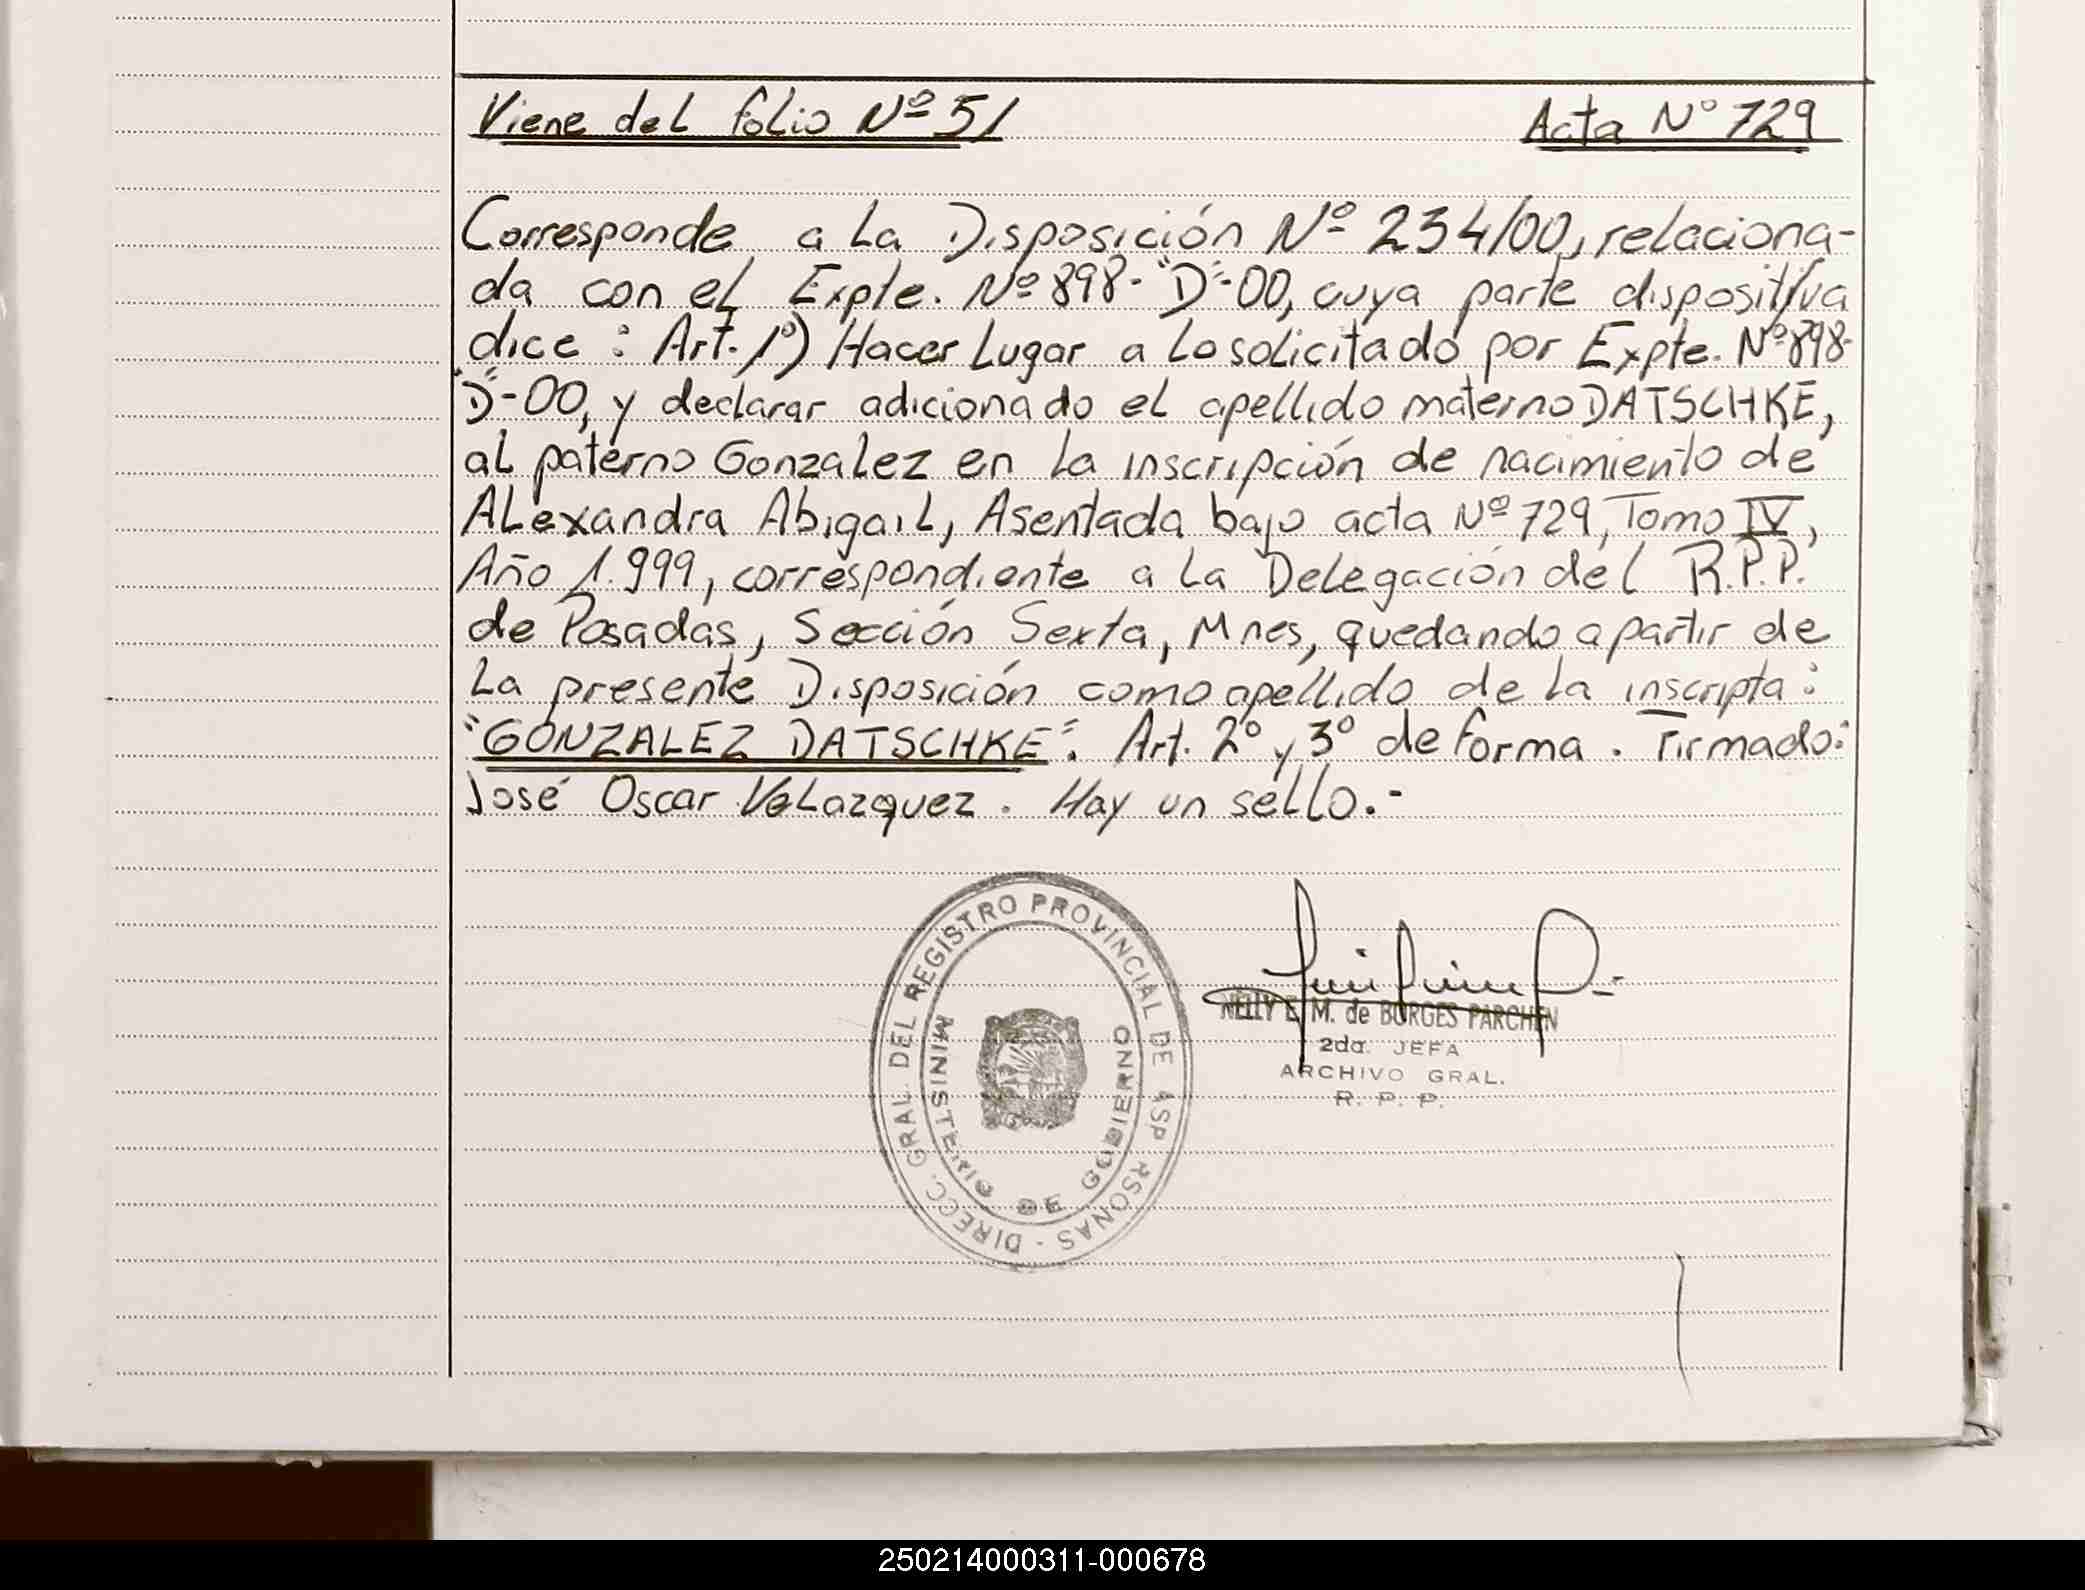 Viene del folio Nº 51
Acta Nº 729
Corresponde a la Disposición Nº 234/00, relaciona-
da con el Expte. Nº 898-"D"-00, cuya parte dispositiva
dice: Art. 1º) Hacer Lugar a lo solicitado por Expte. Nº 898-
"D"-00, y declarar adicionado el apellido materno DATSCHKE,
al paterno Gonzalez en la inscripción de nacimiento de
Alexandra Abigail, Asentada bajo acta Nº 729, Tomo IV,
Año 1.999, correspondiente a la Delegación del R.P.P.
de Posadas, Sección Sexta, Mnes, quedando a partir de
la presente Disposición como apellido de la inscripta:
"GONZALEZ DATSCHKE". Art. 2º y 3º de forma. Firmado:
José Oscar Velazquez. Hay un sello.-
DIRECC. GRAL. DEL REGISTRO PROVINCIAL DE RSONAS -
MINISTERIO DE GOBIERNO
NELLY E. M. de BORGES PARCHEN
2da. JEFA
ARCHIVO GRAL.
R. P. P.
250214000311-000678